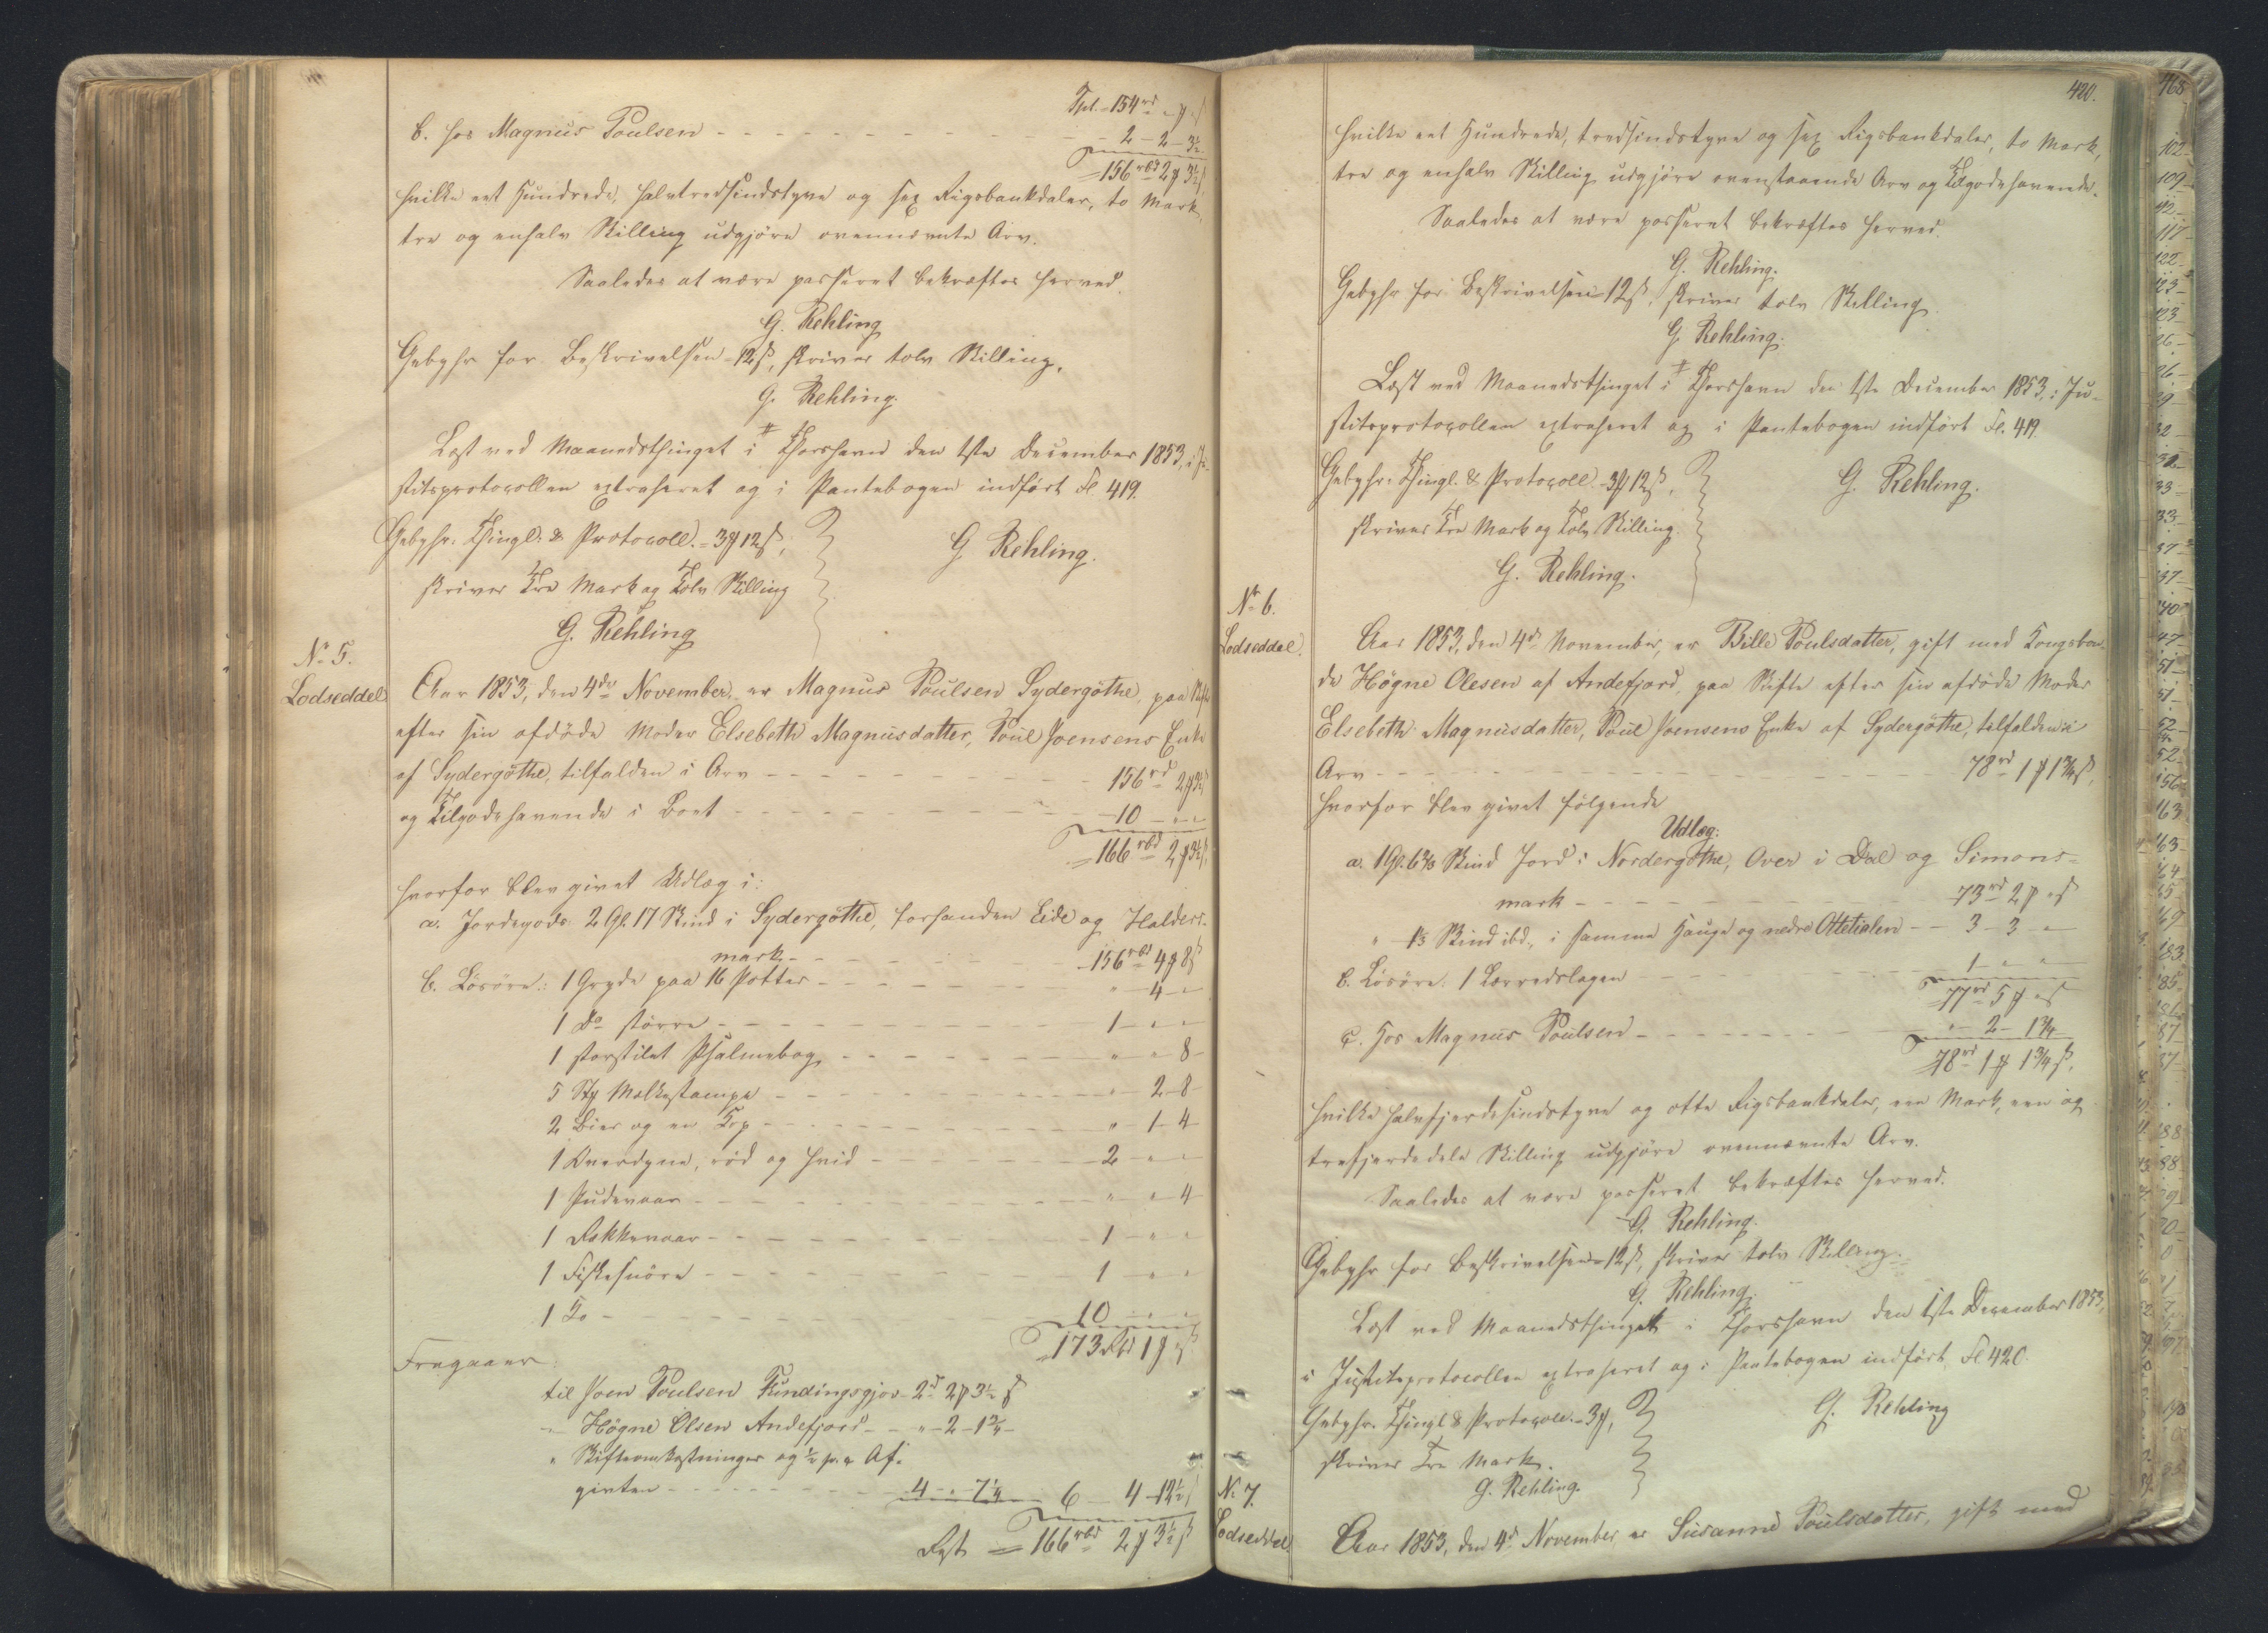 Tpl. 154rd " ₰ " ß
b. hos Magnus Poulsen - - - 2 - 2 - 3½
= 156rbd 2 ₰ 3½ ß
hvilke eet Hundrede, halvtredsindstyve og sex Rigsbankdaler, to Mark,
tre og enhalv Skilling udgjøre ovennævnte Arv.
Saaledes at være passeret bekræftes herved.
G. Rehling
Gebyhr for Beskrivelsen 12 ß, skriver tolv Skilling.
G. Rehling.
Læst ved Maanedsthinget i Thorshavn den 1ste December 1853, i Ju-
stitsprotocollen extraheret og i Pantebogen indført Fl 419.
Gebyhr: Thingl. & Protocoll. - 3 ₰ 12 ß,
skriver Tre Mark og Tolv Skilling
G. Rehling.
G. Rehling
No 5.
Lodseddel
Aar 1853, den 4de November, er Magnus Poulsen Sydergøthe, paa Skifte
efter sin afdøde Moder Elsebeth Magnusdatter, Poul Joensens Enke
af Sydergøthe, tilfalden i Arv - - - 156rd 2 ₰ 3½ ß
og Tilgodehavende i Boet - - - 10 - " - "
= 166rbd 2 ₰ 3½ ß,
hvorfor blev givet Udlæg i:
a. Jordegods: 2 Gl. 17 Skind i Sydergøthe, forhanden Eide og Halders-
mark - - - 156rbd 4 ₰ 8 ß
b. Løsøre: 1 Gryde paa 16 Potter - - - " - 4 - "
1 Do større - - - 1 - " - "
1 storstilet Psalmebog - - - " - " - 8
5 Stk Malkestampe - - - " - 2 - 8
2 Bier og en Top - - - " - 1 - 4
1 Overdyne, rød og hvid - - - 2 - " - "
1 Pudevaar - - - " - " - 4
1 Dækkevaar - - - 1 - " - "
1 Fiskesnøre - - - 1 - " - "
1 Ko - - - 10 - " - "
= 173 Rbd 1 ₰ " ß
Fragaaer:
til Joen Poulsen Fundingsgjov - 2rd 2 ₰ 3½ ß
" Høgne Olsen Andefjord - - " - 2 - 1¾ -
" Skifteomkostninger og ½ p. c Af-
giften - - - 4 - " - 7¼ - 6 - 4 - 12½ ß
Rest = 166rbd 2 ₰ 3½ ß
420.
hvilke eet Hundrede, tredsindstyve og sex Rigsbankdaler, to Mark,
tre og enhalv Skilling udgjøre ovenstaaende Arv og Tilgodehavende.
Saaledes at være passeret bekræftes herved.
G. Rehling.
Gebyhr for Beskrivelsen 12 ß, skriver tolv Skilling.
G. Rehling.
Læst ved Maanedsthinget i Thorshavn den 1ste December 1853, i Ju-
stitsprotocollen extraheret og i Pantebogen indført Fl. 419.
Gebyhr: Thingl. & Protocoll. - 3 ₰ 12 ß,
skriver Tre Mark og Tolv Skilling.
G. Rehling.
G. Rehling.
No 6.
Lodseddel.
Aar 1853, den 4de November, er Bille Poulsdatter, gift med Kongsbon-
de Høgne Olesen af Andefjord, paa Skifte efter sin afdøde Moder
Elsebeth Magnusdatter, Poul Joensens Enke af Sydergøthe, tilfalden i
Arv - - - 78rd 1 ₰ 1¾ ß,
hvorfor blev givet følgende
Udlæg:
a. 1 Gl. 6⅔ Skind Jord i Nordergøthe, Over i Dal og Simons-
mark - - - 73rd 2 ₰ " ß
" 1⅓ Skind ibd., i samme Hauge og nedre Ottetialen - - 3 - 3 - "
b. Løsøre: 1 Lærredslagen - - - 1 - " - "
= 77rd 5 ₰ " ß
c. Hos Magnus Poulsen - - - " - 2 - 1¾
= 78rd 1 ₰ 1¾ ß,
hvilke halvfjerdesindstyve og otte Rigsbankdaler, een Mark, een og
trefjerdedele Skilling udgjøre ovennævnte Arv.
Saaledes at være passeret bekræftes herved.
G. Rehling.
Gebyhr for Beskrivelsen 12 ß, skriver tolv Skilling.
G. Rehling.
Læst ved Maanedsthinget i Thorshavn den 1ste December 1853,
i Justitsprotocollen extraheret og i Pantebogen indført Fl 420.
Gebyhr. Thingl & Protocoll. - 3 ₰,
skriver Tre Mark.
G. Rehling
G. Rehling.
No 7.
Lodseddel.
Aar 1853, den 4de November er Susanne Poulsdatter, gift med